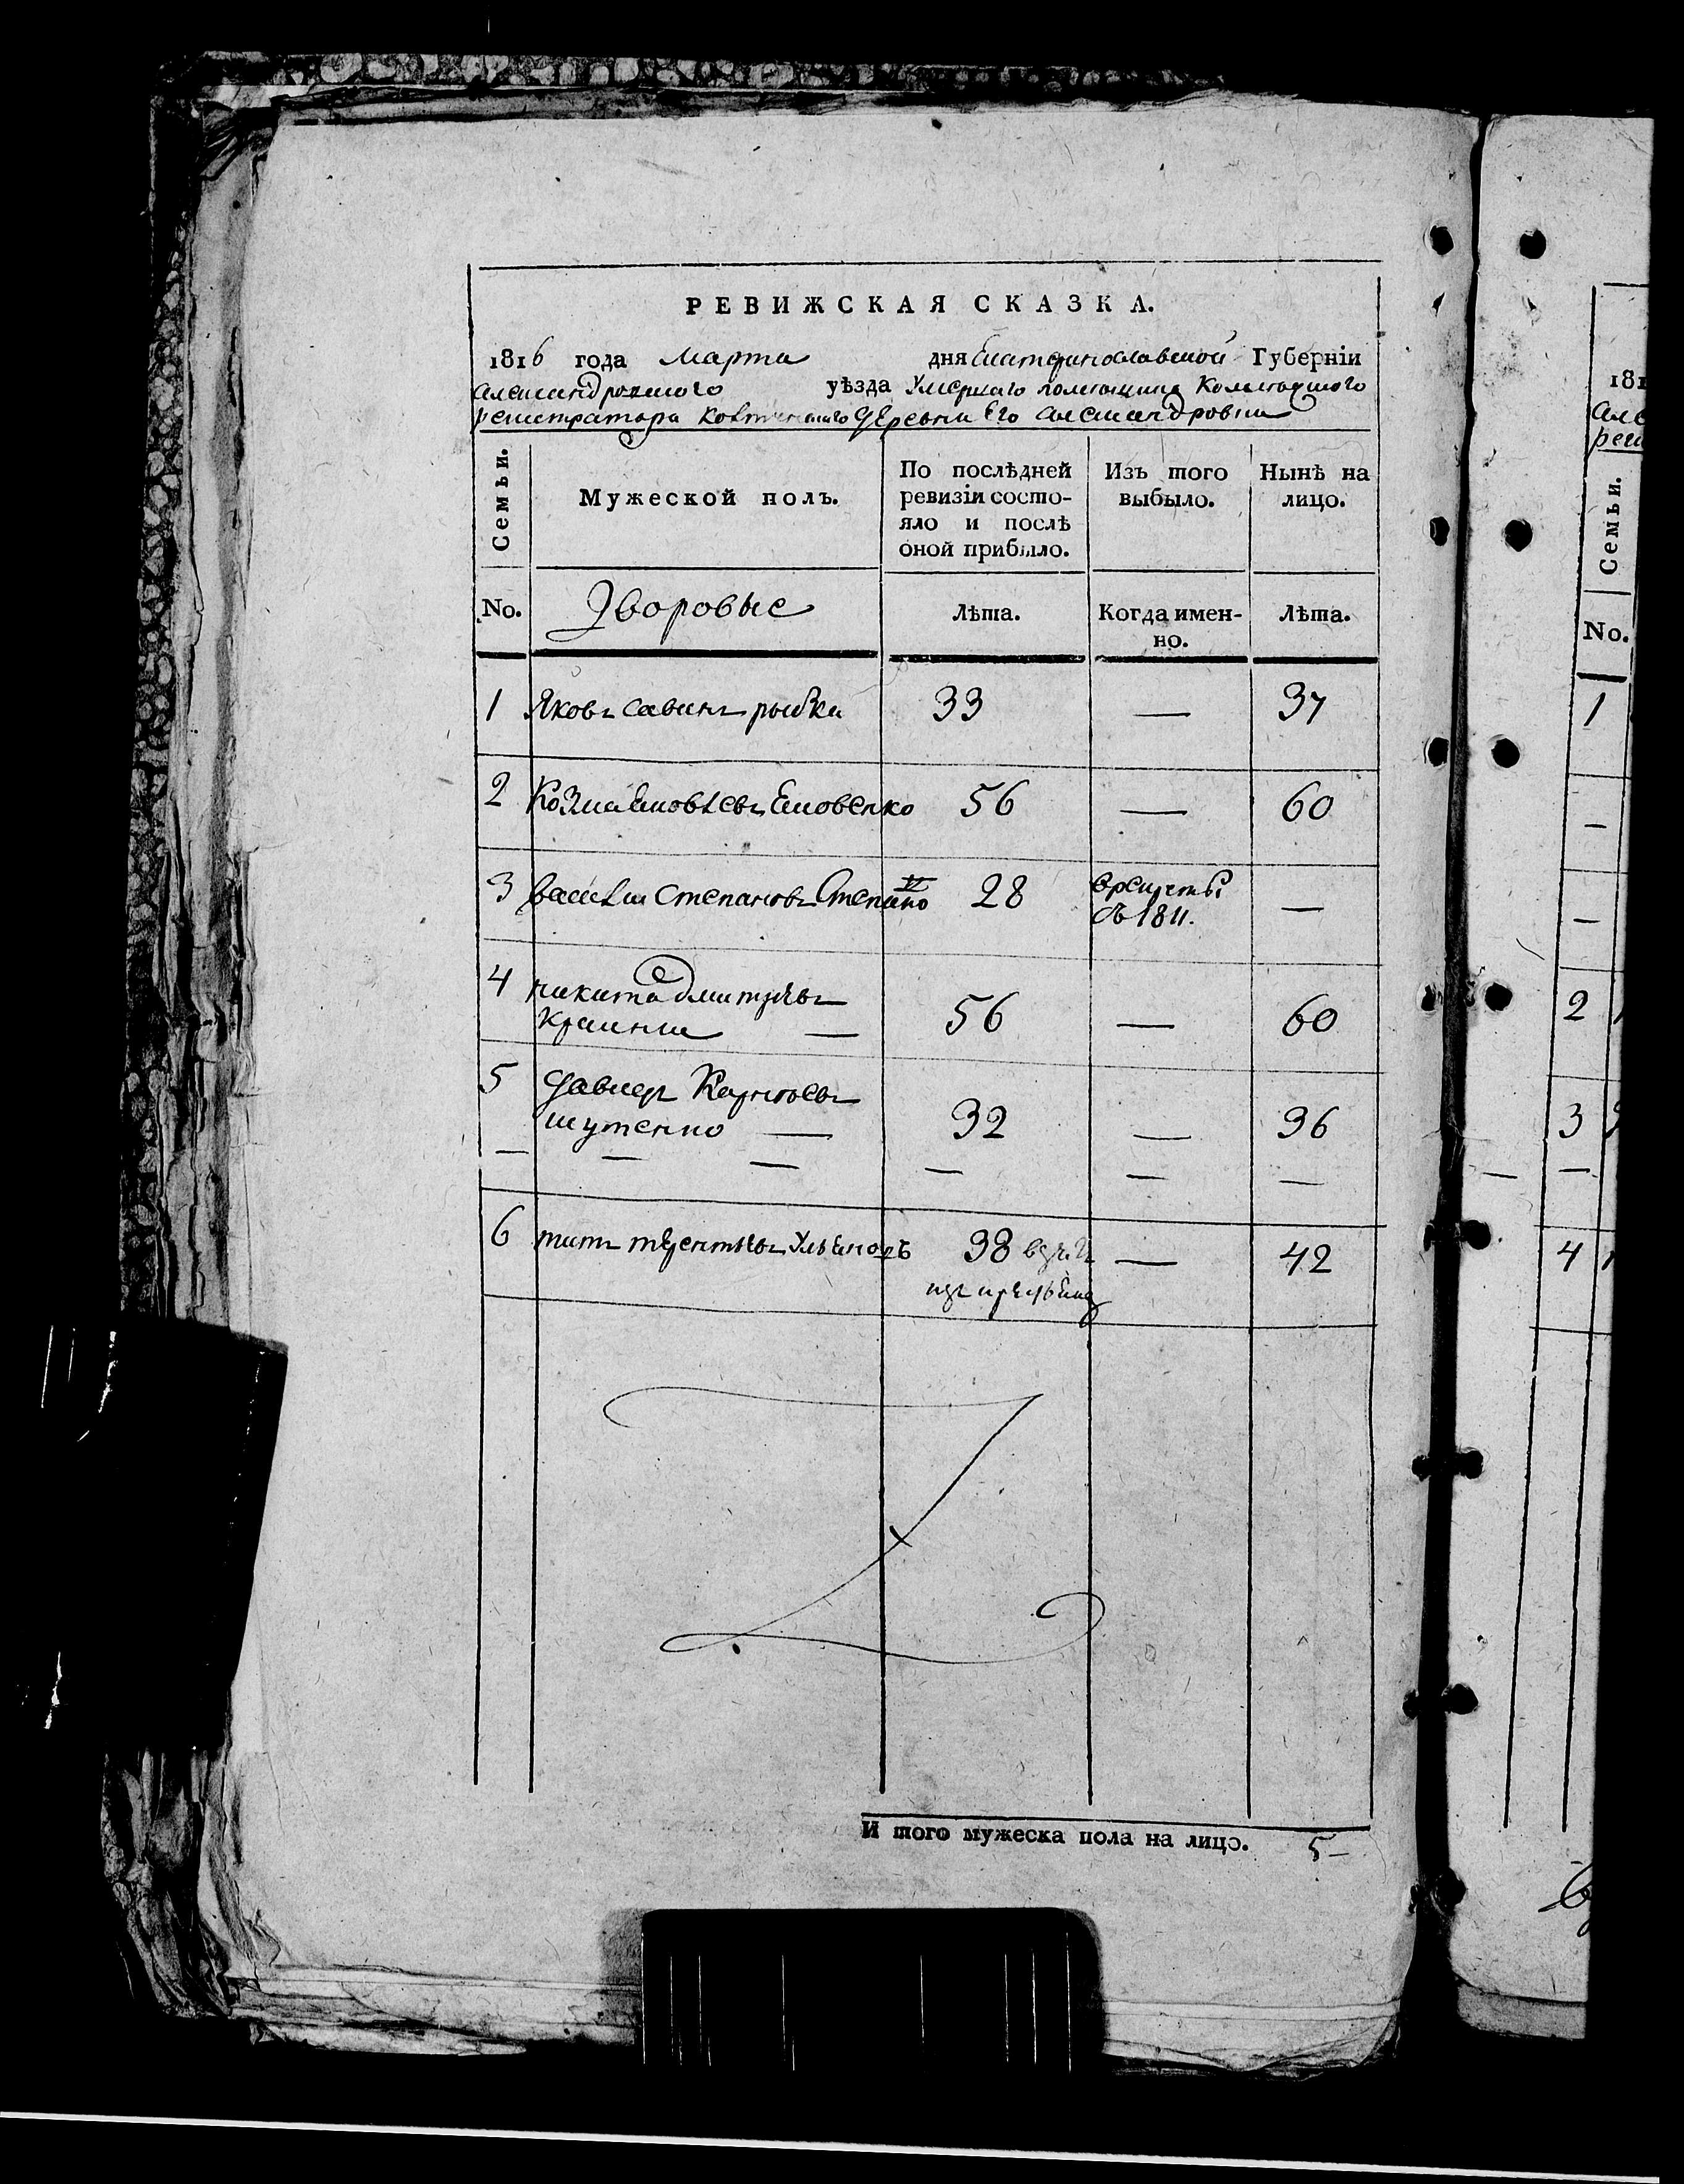 РЕВИЖСКАЯ СКАЗКА.
1816 года Марта дня Екатеринославской Губерніи
Александровского уѣзда Умершаго помещика Колежского
регистратора деревни Его Александровки
Семьи. Мужеской полъ. По послѣдней ревизіи состо-яло и послѣ оной прибыло. Изъ того выбыло. Нынѣ на лицо.
No. Дворовые Лѣта. Когда имен-но. Лѣта.
1 Яковъ савинъ рыбка 33 — 37
2 Козма Яковлевъ Яковенко 56 — 60
3 василий Степановъ 28 — —
въ 1811.
4 никита дмитриевъ
56 — 60
5 давидъ Карповъ
шутенко — 32 — 36
— — — — — —
6 титъ терентьевъ 38 — 42
изъ
И того мужеска пола на лицо. 5 —
181
Але
реги
Семьи.
No.
1
—
—
2
3
—
4